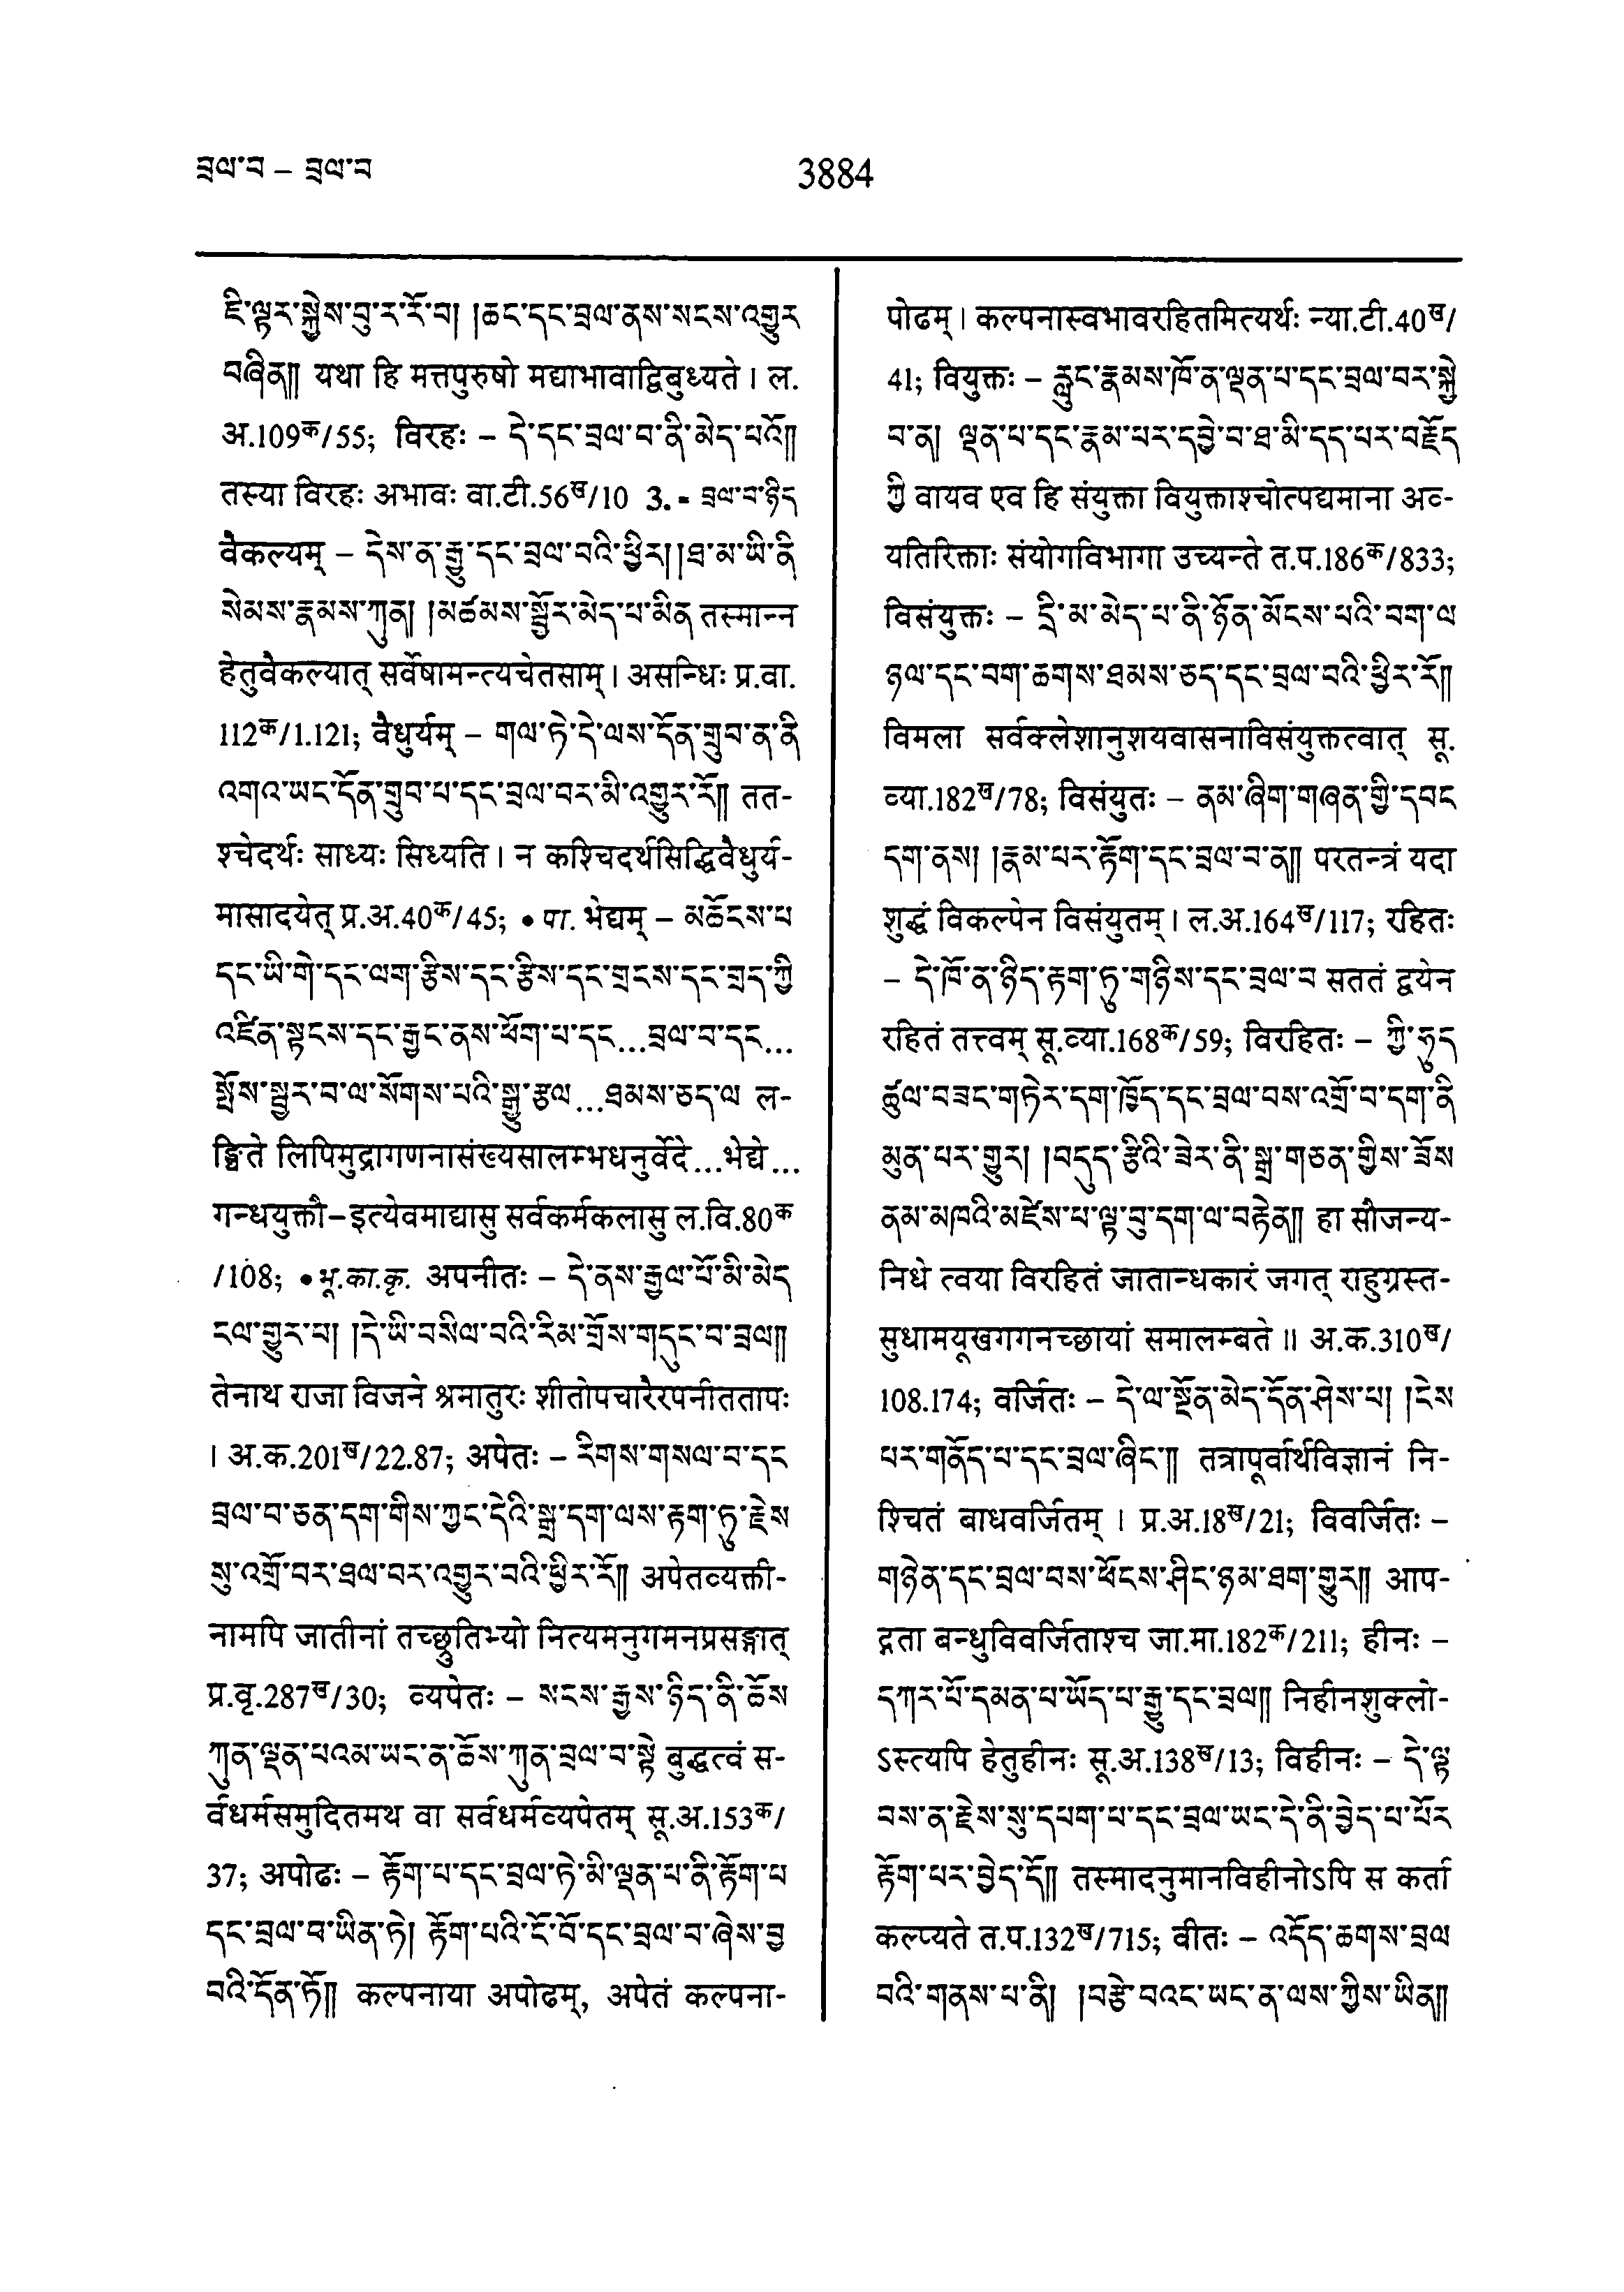 བྲལ་བ – བྲལ་བ
3884
ཇི་ལྟར་སྐྱེས་བུ་ར་རོ་བ། །ཆང་དང་བྲལ་ནས་སངས་འགྱུར
བཞིན།། यथा हि मत्तपुरुषो मद्याभावाद्विबुध्यते । ल.
अ.109क/55; विरहः – དེ་དང་བྲལ་བ་ནི་མེད་པའོ།།
तस्या विरहः अभावः वा.टी.56ख/10 3. ॰ བྲལ་བ་ཉིད
वैकल्यम् – དེས་ན་རྒྱུ་དང་བྲལ་བའི་ཕྱིར།།ཐ་མ་ཡི་ནི
སེམས་རྣམས་ཀུན། །མཚམས་སྦྱོར་མེད་པ་མིན तस्मान्न
हेतुवैकल्यात् सर्वेषामन्त्यचेतसाम् । असन्धिः प्र.वा.
112क/1.121; वैधुर्यम् – གལ་ཏེ་དེ་ལས་དོན་གྲུབ་ན་ནི
འགའ་ཡང་དོན་གྲུབ་པ་དང་བྲལ་བར་མི་འགྱུར་རོ།། तत-
श्चेदर्थः साध्यः सिध्यति । न कश्चिदर्थसिद्धिवैधुर्य-
मासादयेत् प्र.अ.40क/45; • पा. भेद्यम् – མཆོངས་པ
དང་ཡི་གེ་དང་ལག་རྩིས་དང་རྩིས་དང་གྲངས་དང་གྲད་ཀྱི
འཛིན་སྟངས་དང་རྒྱང་ནས་ཕོག་པ་དང...བྲལ་བ་དང...
སྤོས་སྦྱར་བ་ལ་སོགས་པའི་སྒྱུ་རྩལ...ཐམས་ཅད་ལ ल-
ङ्घिते लिपिमुद्रागणनासंख्यसालम्भधनुर्वेदे...भेद्ये...
गन्धयुक्तौ–इत्येवमाद्यासु सर्वकर्मकलासु ल.वि.80क
/108; • भू.का.कृ. अपनीतः – དེ་ནས་རྒྱལ་པོ་མི་མེད
ངལ་གྱུར་པ། །དེ་ཡི་བསིལ་བའི་རིམ་གྲོས་གདུང་བ་བྲལ།།
तेनाथ राजा विजने श्रमातुरः शीतोपचारैरपनीततापः
। अ.क.201ख/22.87; अपेतः – རིགས་གསལ་བ་དང
བྲལ་བ་ཅན་དག་གིས་ཀྱང་དེའི་སྒྲ་དག་ལས་རྟག་ཏུ་རྗེས
སུ་འགྲོ་བར་ཐལ་བར་འགྱུར་བའི་ཕྱིར་རོ།། अपेतव्यक्ती-
नामपि जातीनां तच्छ्रुतिभ्यो नित्यमनुगमनप्रसङ्गात्
प्र.वृ.287ख/30; व्यपेतः – སངས་རྒྱས་ཉིད་ནི་ཆོས
ཀུན་ལྡན་པའམ་ཡང་ན་ཆོས་ཀུན་བྲལ་བ་སྟེ बुद्धत्वं स-
र्वधर्मसमुदितमथ वा सर्वधर्मव्यपेतम् सू.अ.153क/
37; अपोढः – རྟོག་པ་དང་བྲལ་ཏེ་མི་ལྡན་པ་ནི་རྟོག་པ
དང་བྲལ་བ་ཡིན་ཏེ། རྟོག་པའི་ངོ་བོ་དང་བྲལ་བ་ཞེས་བྱ
བའི་དོན་ཏོ།། कल्पनाया अपोढम्, अपेतं कल्पना-
पोढम् । कल्पनास्वभावरहितमित्यर्थः न्या.टी.40ख/
41; वियुक्तः – རླུང་རྣམས་ཁོ་ན་ལྡན་པ་དང་བྲལ་བར་སྐྱེ
བ་ན། ལྡན་པ་དང་རྣམ་པར་དབྱེ་བ་ཐ་མི་དད་པར་བརྗོད
ཀྱི वायव एव हि संयुक्ता वियुक्ताश्चोत्पद्यमाना अव्-
यतिरिक्ताः संयोगविभागा उच्यन्ते त.प.186क/833;
विसंयुक्तः – དྲི་མ་མེད་པ་ནི་ཉོན་མོངས་པའི་བག་ལ
ཉལ་དང་བག་ཆགས་ཐམས་ཅད་དང་བྲལ་བའི་ཕྱིར་རོ།།
विमला सर्वक्लेशानुशयवासनाविसंयुक्तत्वात् सू.
व्या.182ख/78; विसंयुतः – ནམ་ཞིག་གཞན་གྱི་དབང
དག་ནས། །རྣམ་པར་རྟོག་དང་བྲལ་བ་ན།། परतन्त्रं यदा
शुद्धं विकल्पेन विसंयुतम् । ल.अ.164ख/117; रहितः
– དེ་ཁོ་ན་ཉིད་རྟག་ཏུ་གཉིས་དང་བྲལ་བ सततं द्वयेन
रहितं तत्त्वम् सू.व्या.168क/59; विरहितः – ཀྱི་ཧུད
ཚུལ་བཟང་གཏེར་དག་ཁྱོད་དང་བྲལ་བས་འགྲོ་བ་དག་ནི
མུན་པར་གྱུར། །བདུད་རྩིའི་ཟེར་ནི་སྒྲ་གཅན་གྱིས་ཟོས
ནམ་མཁའི་མཛེས་པ་ལྟ་བུ་དག་ལ་བརྟེན།། हा सौजन्य-
निधे त्वया विरहितं जातान्धकारं जगत् राहुग्रस्त-
सुधामयूखगगनच्छायां समालम्बते ॥ अ.क.310ख/
108.174; वर्जितः – དེ་ལ་སྔོན་མེད་དོན་ཤེས་པ། །ངེས
པར་གནོད་པ་དང་བྲལ་ཞིང་།། तत्रापूर्वार्थविज्ञानं नि-
श्चितं बाधवर्जितम् । प्र.अ.18ख/21; विवर्जितः –
གཉེན་དང་བྲལ་བས་ཕོངས་ཤིང་ཉམ་ཐག་གྱུར།། आप-
द्गता बन्धुविवर्जिताश्च जा.मा.182क/211; हीनः –
དཀར་པོ་དམན་པ་ཡོད་པ་རྒྱུ་དང་བྲལ།། निहीनशुक्लो-
ऽस्त्यपि हेतुहीनः सू.अ.138ख/13; विहीनः – དེ་ལྟ
བས་ན་རྗེས་སུ་དཔག་པ་དང་བྲལ་ཡང་དེ་ནི་བྱེད་པ་པོར
རྟོག་པར་བྱེད་དོ།། तस्मादनुमानविहीनोऽपि स कर्ता
कल्प्यते त.प.132ख/715; वीतः – འདོད་ཆགས་བྲལ
བའི་གནས་པ་ནི། །བརྩེ་བའང་ཡང་ན་ལས་ཀྱིས་ཡིན།།